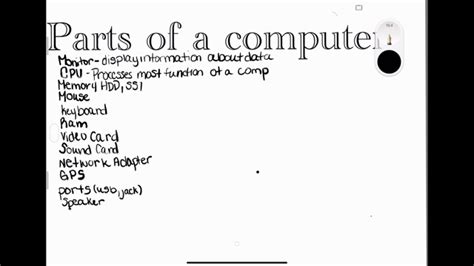 Parts of a computer
Monitor - display information about data
CPU - Processes most function of a comp
Memory HDD, SSI
Mouse
keyboard
Ram
Video Card
Sound Card
Network Adapter
GPS
ports (usb, jack)
Speaker